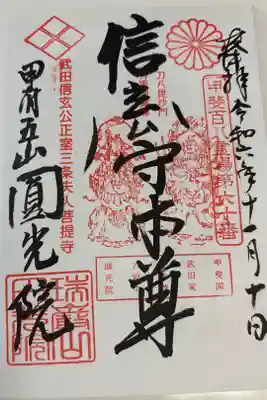 奉拝 令和六年十一月十日
甲斐百八霊場第六十番
刀八毘沙門
信玄公守本尊
武田信玄公正室三条夫人菩提寺
甲府五山 圓光院
甲斐国
武田家
圓光院
瑞岩山